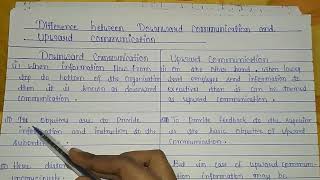 Difference between Downward communication and
Upward communication
Downward Communication
Upward Communication
i) When information flow from
top to bottom of the organisation
then it is known as downward
communication.
i) on the other hand, when lower
level employs send information to
executives then it can be
termed as upward communication.
ii) The objectives are to Provide
information and instruction to the
subordinates.
ii) To provide feedback to the superior
is the basic objective of upward
communication.
iii) Here
iii) But in case of upward commun-
ication information may be